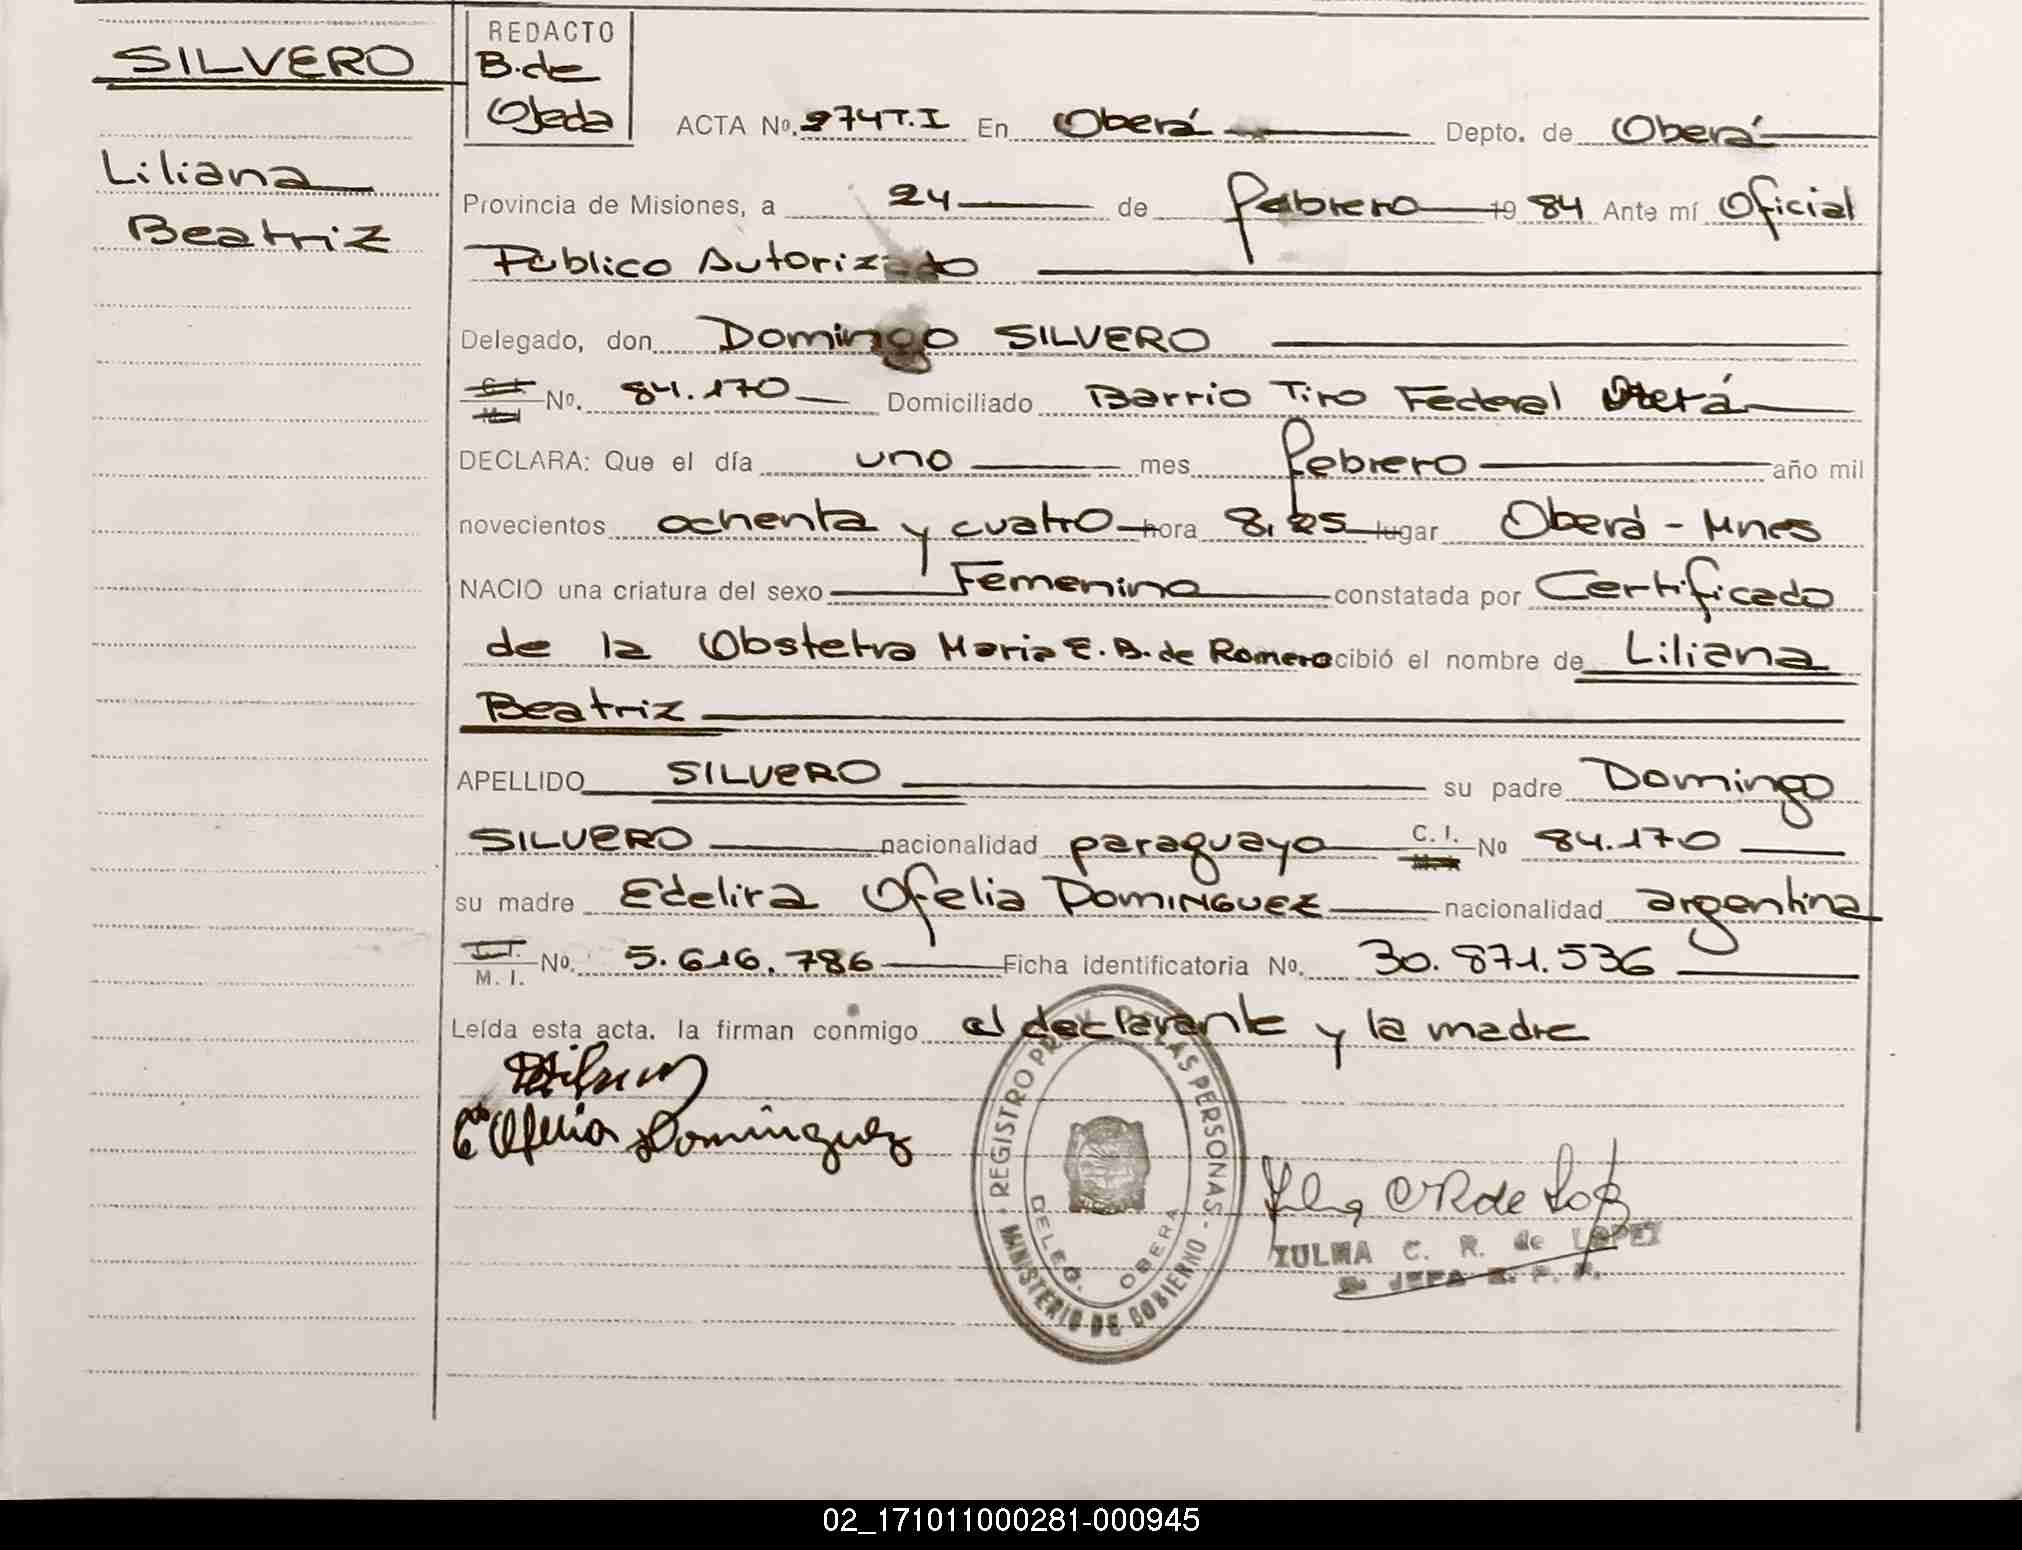 SILVERO
Liliana
Beatriz
REDACTO
B. de
Ojeda
ACTA No. 274 T.I En Oberá Depto. de Oberá
Provincia de Misiones, a 24 de febrero 19 84 Ante mí Oficial
Público Autorizado
Delegado, don Domingo SILVERO
No. 84.170 Domiciliado Barrio Tiro Federal Oberá
DECLARA: Que el día uno mes febrero año mil
novecientos ochenta y cuatro hora 8,25 lugar Oberá - Mnes
NACIO una criatura del sexo Femenino constatada por Certificado
de la Obstetra Maria E. B. de Romero cibió el nombre de Liliana
Beatriz
APELLIDO SILVERO su padre Domingo
SILVERO nacionalidad paraguayo C. I. No 84.170
su madre Edelira Ofelia DOMINGUEZ nacionalidad argentina
M. I. No. 5.616.786 Ficha identificatoria No. 30.871.536
Leída esta acta. la firman conmigo el declarante y la madre
Ofelia Dominguez
REGISTRO PROV. DE LAS PERSONAS - MINISTERIO DE GOBIERNO
DELEG. OBERA
ZULMA C. R. de LOPEZ
JEFA
02_171011000281-000945